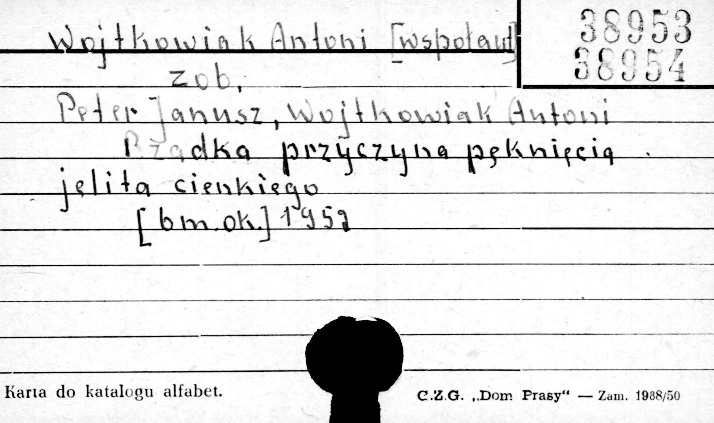 Wojtkowiak Antoni [współaut]
38953
38954
zob.
Peter Janusz, Wojtkowiak Antoni
Rządka przyczyna pęknięcia
jelita cienkiego
[b.m.ok.] 1957
Karta do katalogu alfabet.
C.Z.G. „Dom Prasy" — Zam. 1988/50